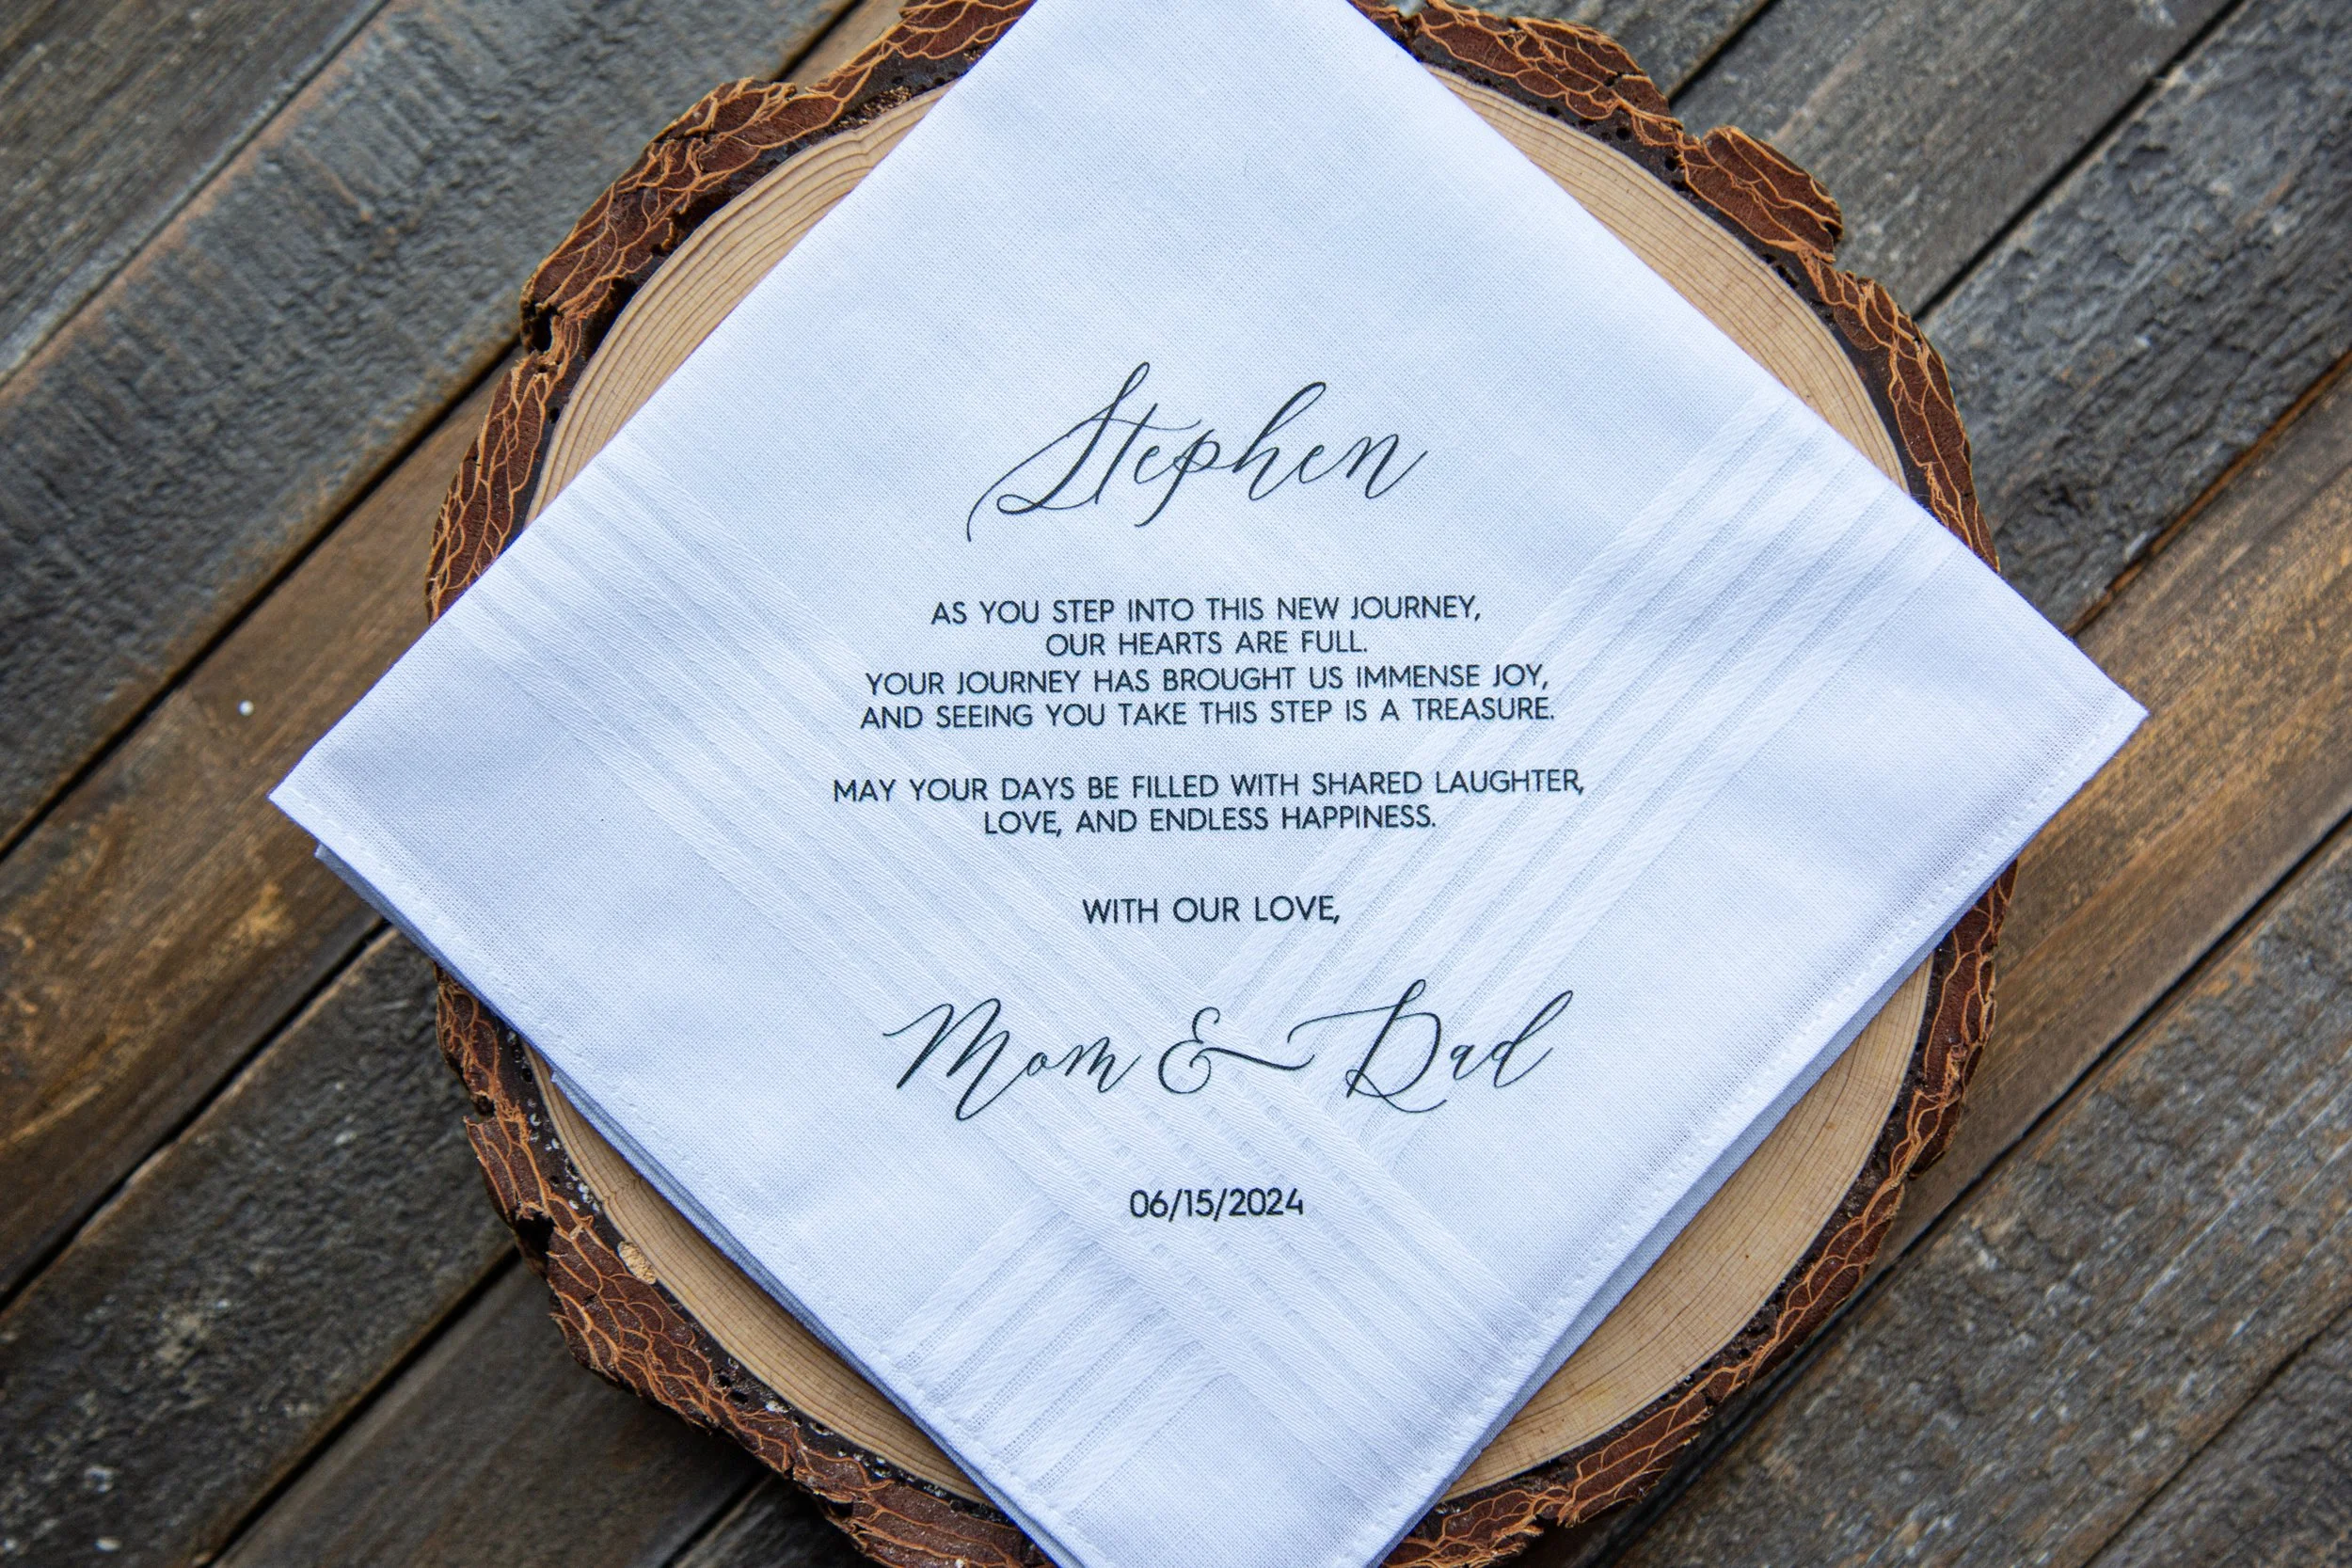 Stephen
AS YOU STEP INTO THIS NEW JOURNEY,
OUR HEARTS ARE FULL.
YOUR JOURNEY HAS BROUGHT US IMMENSE JOY,
AND SEEING YOU TAKE THIS STEP IS A TREASURE.
MAY YOUR DAYS BE FILLED WITH SHARED LAUGHTER,
LOVE, AND ENDLESS HAPPINESS.
WITH OUR LOVE,
Mom & Dad
06/15/2024